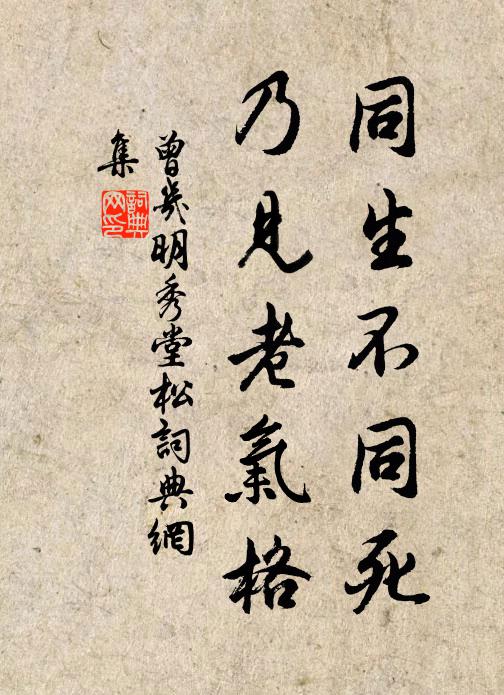 同生不同死
乃見老氣格
曾幾明秀堂松詞典網
集
詞典
网印